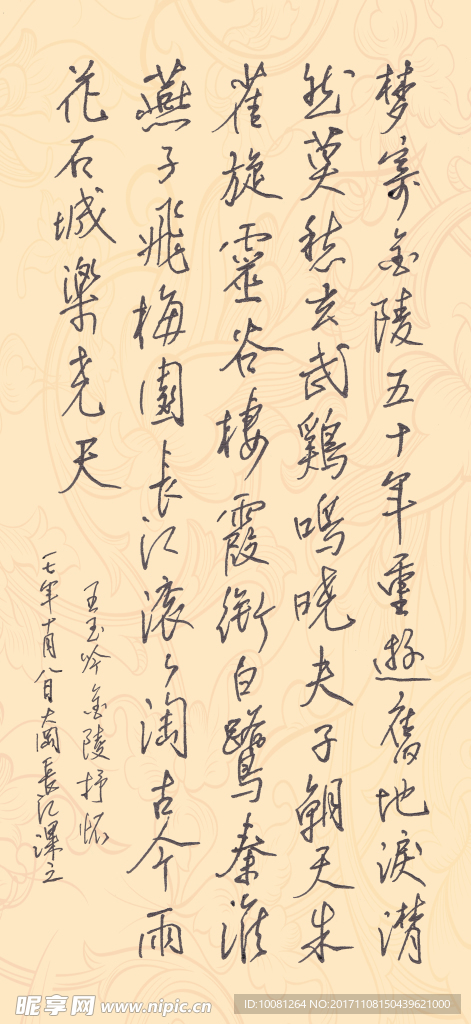 梦寄金陵五十年重遊舊地淚潸
然莫愁玄武鷄鳴曉夫子朝天朱
雀旋靈谷棲霞銜白鷺秦淮
燕子飛梅園長江滚々淘古今雨
花石城樂尧天
王玉吟金陵抒怀
一七年十月八日大岡長江漯之
昵享网 www.nipic.cn
ID:10081264 NO:20171108150439621000